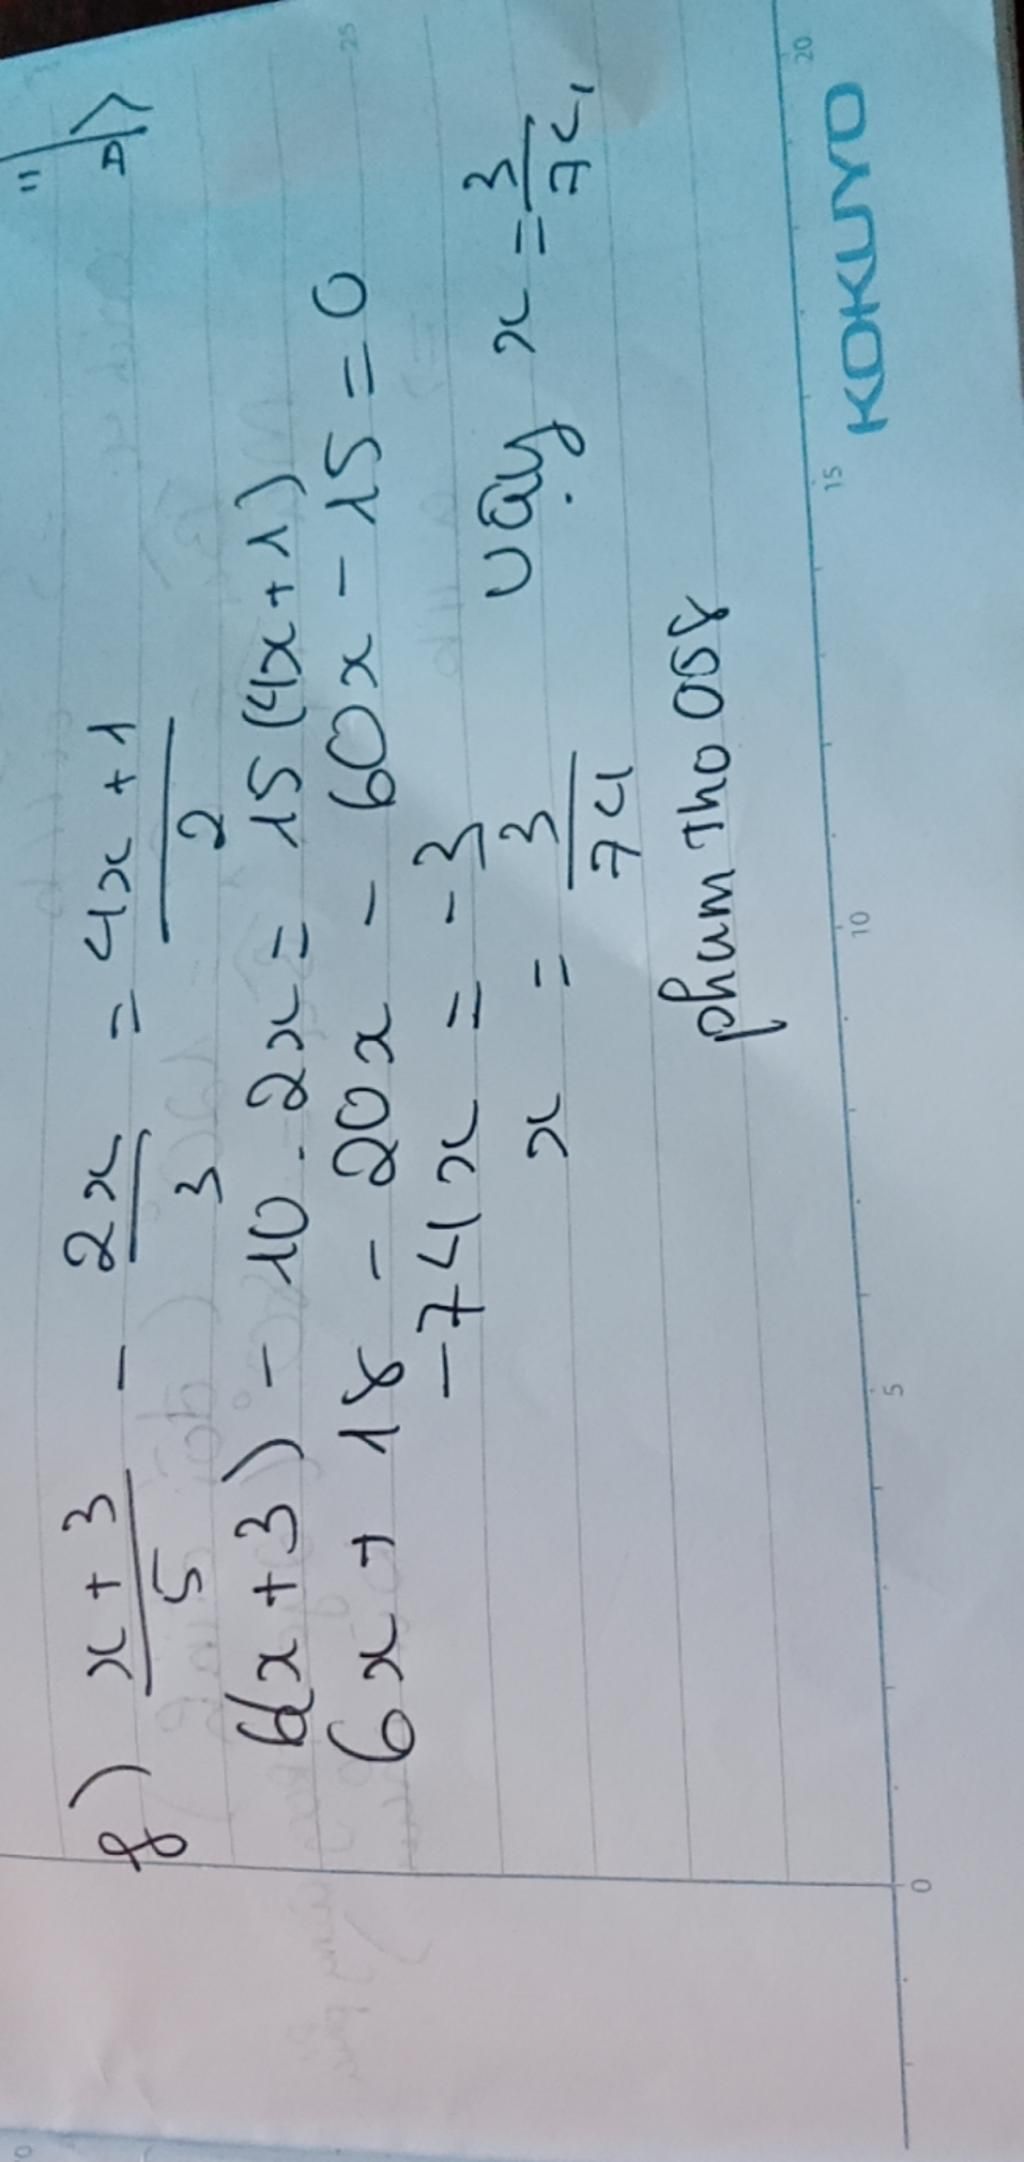 f) x + 3 / 5 - 2x / 3 = 4x + 1 / 2
6(x + 3) - 10 . 2x = 15 (4x + 1)
6x + 18 - 20x - 60x - 15 = 0
-74x = -3
x = 3 / 74 vậy x = 3 / 74
phạm Thơ 058
KOKUYO
0 5 10 15 20
25